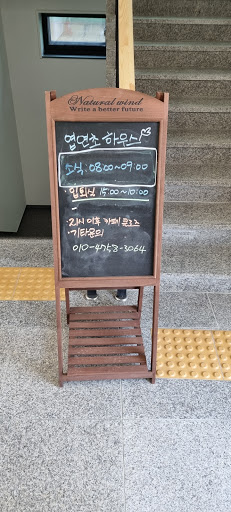 Natural wind
Write a better future
엽연초 하우스!
조식: 08:00~09:00
·입퇴실 15:00~10:00
·21시 이후 카페 클로즈
·기타문의
010-4753-3064